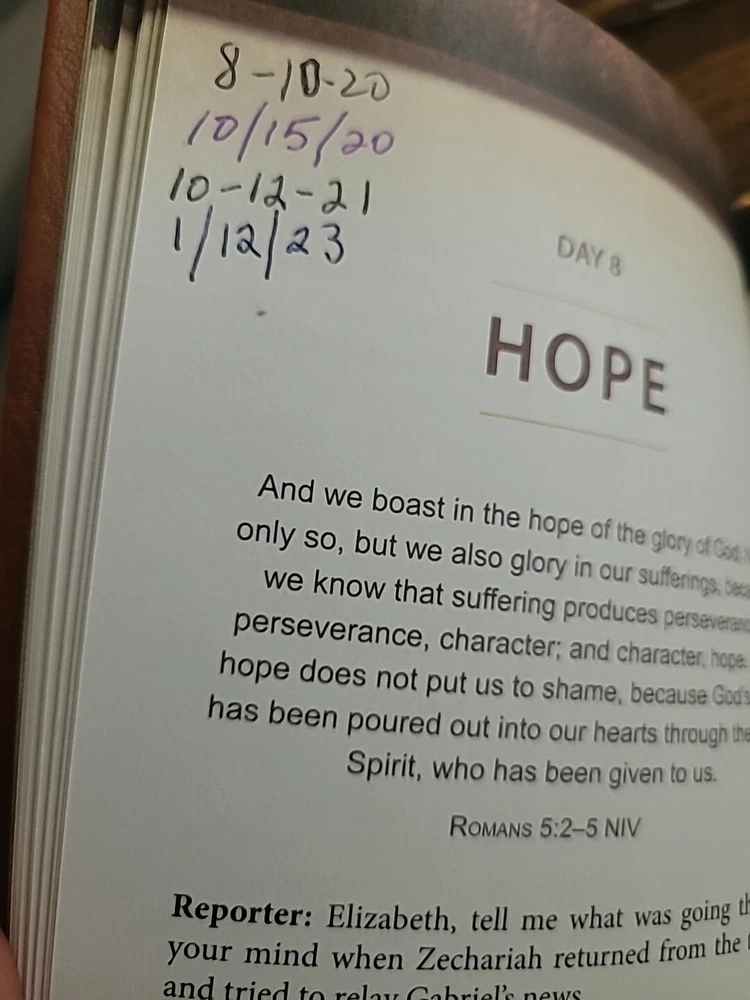 8-10-20
10/15/20
10-12-21
1/12/23
DAY 8
HOPE
And we boast in the hope of the glory of God.
only so, but we also glory in our sufferings,
we know that suffering produces
perseverance, character; and character, hope.
hope does not put us to shame, because God's
has been poured out into our hearts through the
Spirit, who has been given to us.
ROMANS 5:2–5 NIV
Reporter: Elizabeth, tell me what was going
your mind when Zechariah returned from the
and tried to relay Gabriel's news